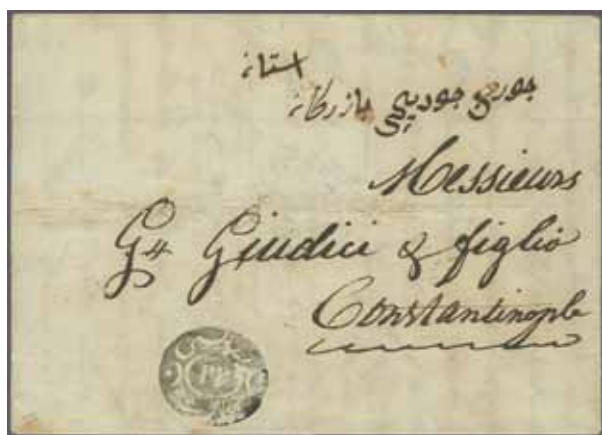 استانه
جورجی جودیچی بازرکانه
Messieurs
Giudici & figlio
Constantinople